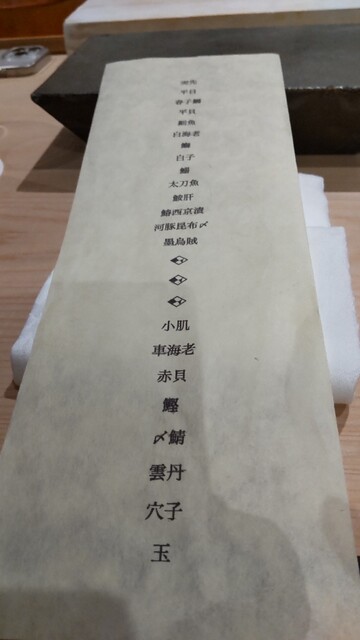 平目
春子鯛
平貝
鮟魚
白海老
白子
太刀魚
鮟肝
鰆西京漬
河豚昆布〆
墨烏賊
小肌
車海老
赤貝
鰹
〆鯖
雲丹
穴子
玉